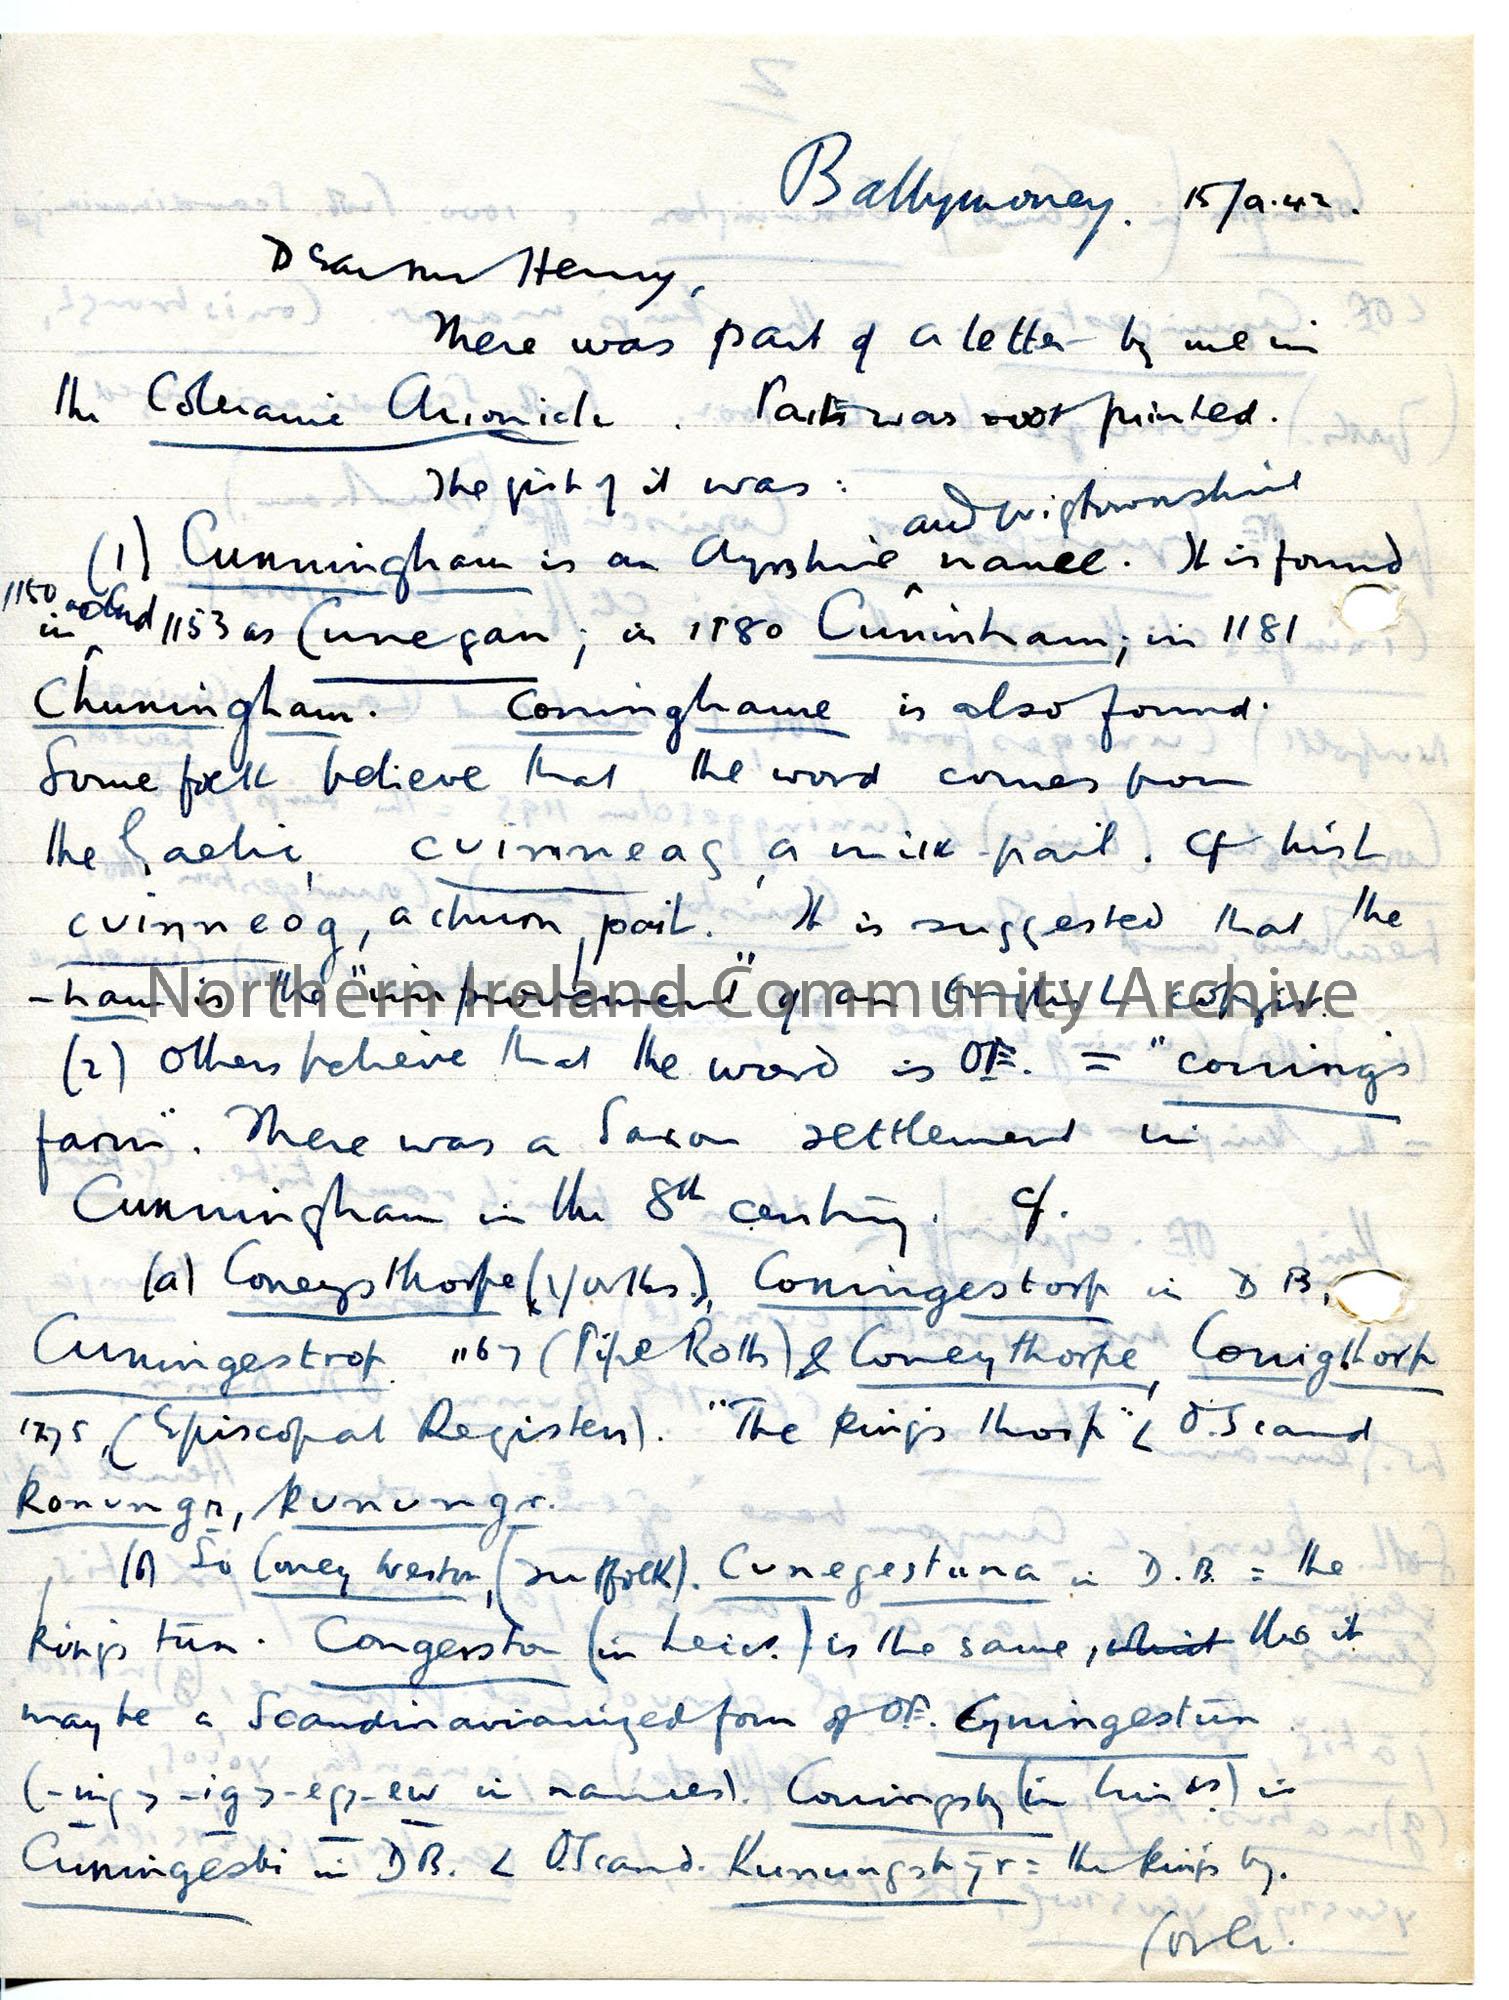 Ballymoney. 15/9.42.
Dear Mr Henry,
There was part of a letter by me in
the Coleraine Chronicle. Part was not printed.
The gist of it was:
and Wigtownshire
(1) Cunningham is an Ayrshire name. It is found
1150 and
in 1153 as Cunegan; in 1180 Cuninham; in 1181
Chuningham. Coninghame is also found.
Some folk believe that the word comes from
the Gaelic, cuinneag, a milk-pail. Cf Irish
cuinneog, a churn, pail. It is suggested that the
-ham is the "improvement" of an English copyist.
(2) Others believe that the word is OE. = "conings
farm". There was a Saxon settlement in
Cunningham in the 8th century. Cf.
(a) Coneysthorpe (Yorks.), Coningestorp in D B,
Cuningestrop 1167 (Pipe Rolls) & Coneythorpe, Conigthorp
1275, (Episcopal Registers). "The King's thorp" < O.Scand
Konungr, Kunungr.
(b) So Coney Weston, (Suffolk). Cunegestuna in D.B. = the
King's tūn. Congerston (in Leics.) is the same, tho it
may be a Scandinavianized form of OE. Cyningestūn
(-ing > -ig > -eg > -ew in names). Coningsby (in Lincs.) is
Cuningesbi in DB. < O.Scand. Kunungsbýr = the King's by.
(over.
Northern Ireland Community Archive